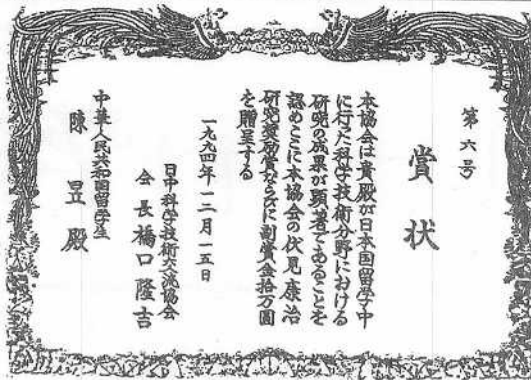 第六号
賞状
本協会は貴殿が日本国留学中
に行った科学技術分野における
研究の成果が顕著であることを
認めここに本協会の伏見康治
研究奨励賞ならびに副賞金拾万圓
を贈呈する
一九九四年一二月一五日
日中科学技術交流協会
会長橋口隆吉
中華人民共和国留学生
陳昱殿